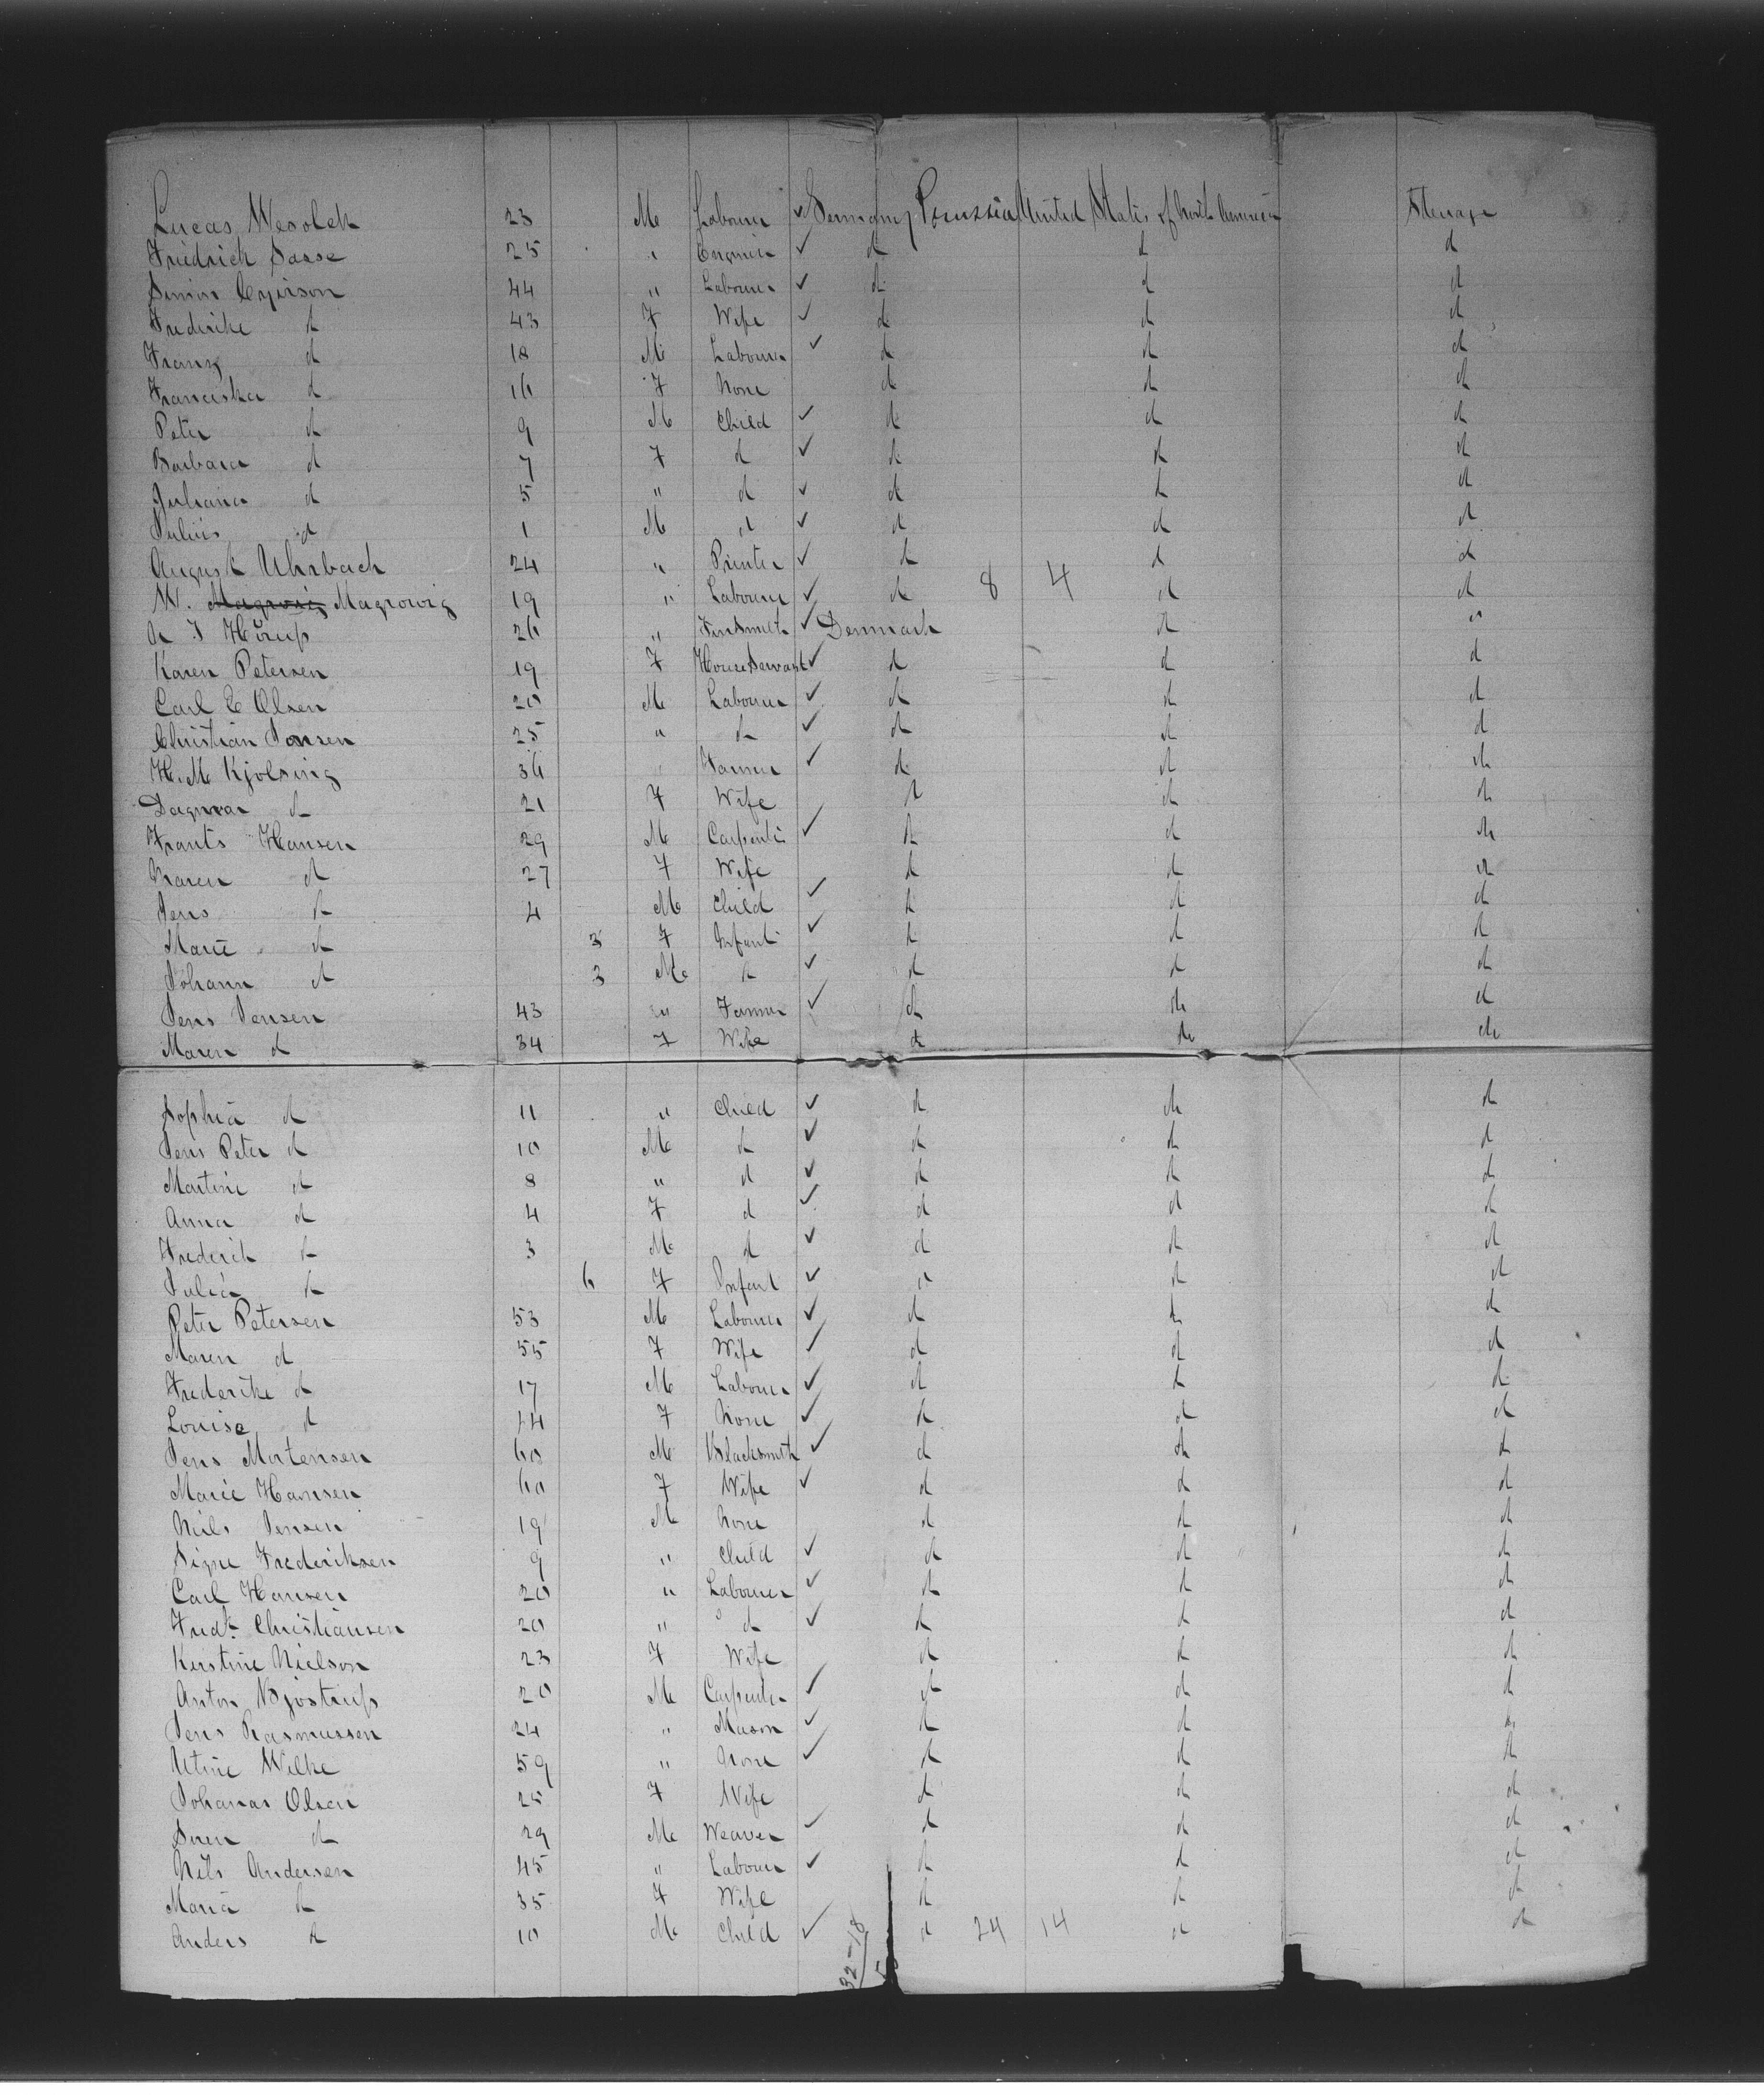 Lucas Wesolek 23 M Labourer ✓ Germany Prussia United States of North America Steerage
Friedrich Sasse 25 " Engineer ✓ do do do
Simon 44 " Labourer ✓ do do do
Frederike do 43 F Wife ✓ do do do
Franz do 18 M Labourer ✓ do do do
Franciska do 16 F None do do do
Peter do 9 M Child ✓ do do do
Barbara do 7 F do ✓ do do do
Juliana do 5 " do ✓ do do do
Julius do 1 M do ✓ do do do
August Uhrbach 24 " Printer ✓ do do do
W. Magrowig 19 " Labourer ✓ do 8 4 do do
26 " Tinsmith ✓ Denmark do "
Karen Petersen 19 F House Servant ✓ do do do
Carl C Olsen 20 M Labourer ✓ do do do
Christian Jansen 25 " do ✓ do do do
H. M. Kjolsing 36 " Farmer ✓ do do do
Dagmar do 21 F Wife do do do
Frants Hansen 29 M Carpenter ✓ do do do
Maren do 27 F Wife do do do
Jens do 4 M Child ✓ do do do
Marie do 3 F Infant ✓ do do do
Johann do 3 M do ✓ do do do
Jens Jensen 43 " Farmer ✓ do do do
Maren do 34 F Wife do do do
Sophia do 11 " Child ✓ do do do
Jens Peter do 10 M do ✓ do do do
Martin do 8 " do ✓ do do do
Anna do 4 F do ✓ do do do
Frederik do 3 M do ✓ do do do
Julia do 6 F Infant ✓ do do do
Peter Petersen 53 M Labourer ✓ do do do
Maren do 55 F Wife ✓ do do do
Frederike do 17 M Labourer ✓ do do do
Louise do 14 F None ✓ do do do
Jens Mortensen 60 M Blacksmith ✓ do do do
Marie Hansen 60 F Wife ✓ do do do
Niels Jensen 19 M None do do do
Signe Frederiksen 9 " Child ✓ do do do
Carl Hansen 20 " Labourer ✓ do do do
Fredk Christiansen 20 " do ✓ do do do
Kirstine Nielson 23 F Wife do do do
Anton Bjostrup 20 M Carpenter ✓ do do do
Jens Rasmussen 24 " Mason ✓ do do do
Wilke 59 " None ✓ do do do
Johanas Olsen 25 F Wife do do do
Soren do 29 M Weaver ✓ do do do
Nils Andersen 45 " Labourer ✓ do do do
Maria do 35 F Wife do do do
Anders do 10 M Child ✓ do 24 14 do do
32-18